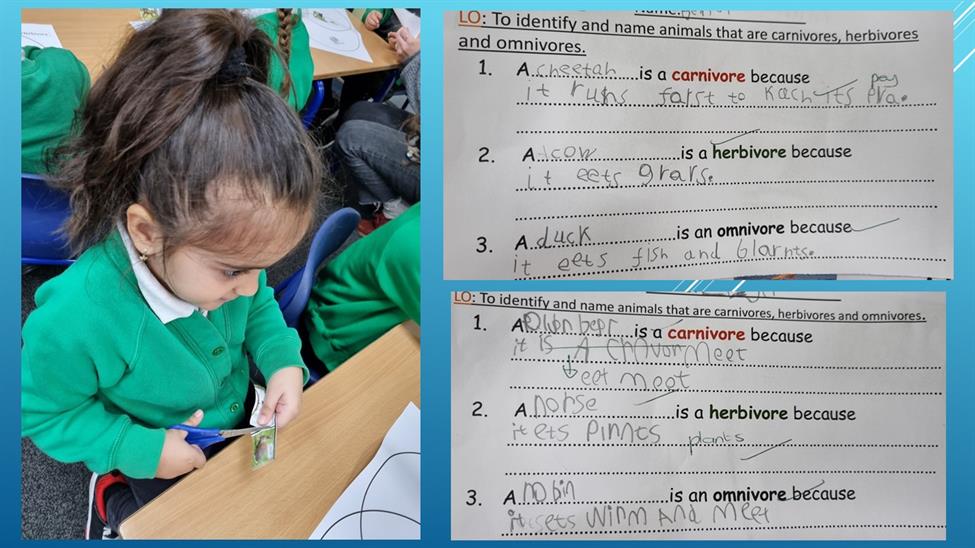 LO: To identify and name animals that are carnivores, herbivores
and omnivores.
1. A cheetah is a carnivore because
it runs farst to kach its pra.
2. A cow is a herbivore because
it eets grars.
3. A duck is an omnivore because
it eets fish and blarnts.
LO: To identify and name animals that are carnivores, herbivores and omnivores.
1. A is a carnivore because
it is A meet
eet meet
2. A horse is a herbivore because
it ets plants
3. A robin is an omnivore because
it ets winm And meet